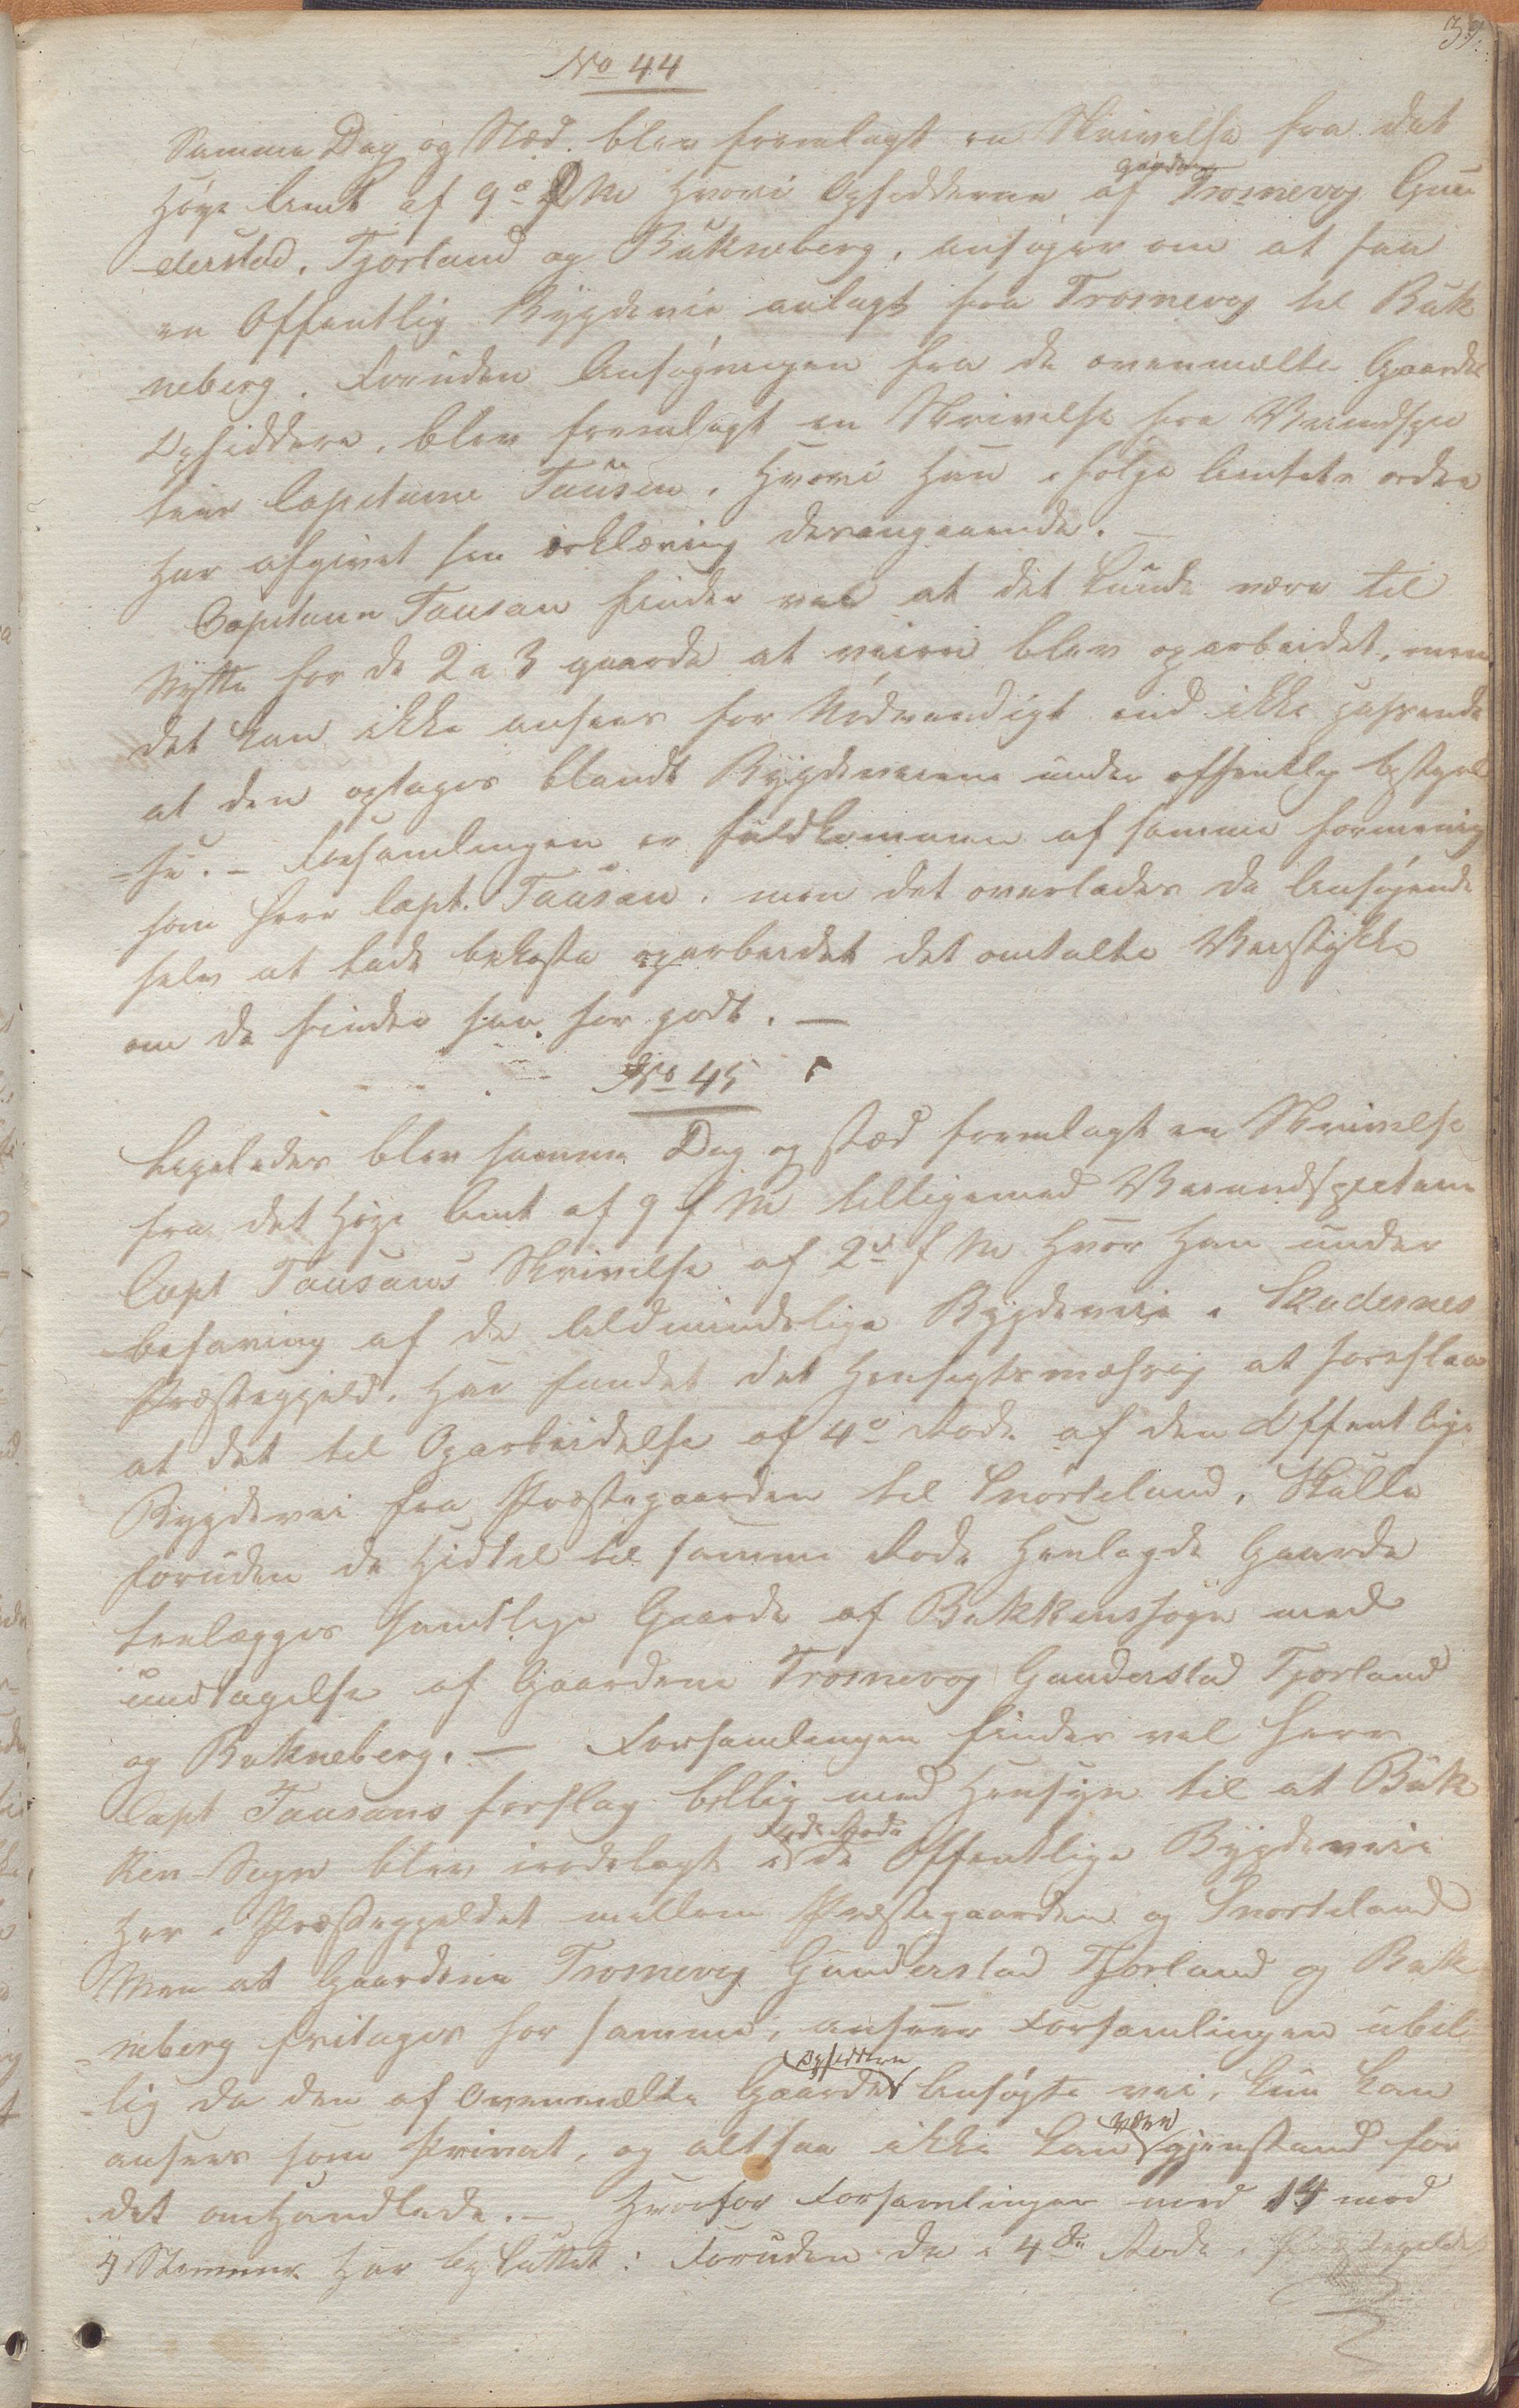 39.
No 44
Samme Dag og Sted. blev fremlagt en Skrivelse fra det
Høye Amt af 9de f M hvori Opsidderne af gaarden Trosnevog Gun
-derstad, Tjorland og Bukneberg, ansøger om at faa
en Offentlig Bygdevei anlagt fra Trosnevog til Buk
-neberg. Foruden Ansøgningen fra de ovenmælte Gaardes
Opsiddere, blev fremlagt en Skrivelse fra Veiindspec
teur Capitaine Tausen, hvori han i følge Amtets ordre
har afgivet sin erklæring desangaaende. —
Capitain Tausan finder vel at det kunde være til
Nytte for de 2 a 3 gaarde at veien blev oparbeidet, men
det kan ikke ansees for Nødvendigt end ikke passende
at den optages blandt Bygdeveiene under offentlig bestyrel
-se. – Forsamlingen er fuldkommen af samme formening
som Herr Capt. Tausan. men det overlades de Ansøgende
selv at lade bekoste oparbeidet det omtalte Veistykke
om de finder saa for godt. —
No 45
Ligeledes blev samme Dag og sted fremlagt en Skrivelse
fra det Høye Amt af 9 f M tilligemed Veiindspecteur
Capt Tausans Skrivelse af 2d f M hvor han under
befaring af de Almindelige Bygdeveie i Skudesnes
Præstegjeld, har fundet det hensigtsmæssig at foreslaa
at det til Oparbeidelse af 4de Rode af den Offentlige
Bygdevei fra Præstegaarden til Snorteland, Skulle
foruden de hidtil til samme Rode henlagde Gaarde
henlægges samtlige Gaarde af Bukkensogn med
undtagelse af Gaardene Trosnevog Gunderstad Tjorland
og Bukneberg. — Forsamlingen finder vel Herr
Capt Tausans forslag billig med hensyn til at Buk
ken-Sogn blev inddelagt i 4de Rode de Offentlige Bygdeveie
her i Præstegjeldet mellem Præstegaarden og Snorteland
Men at Gaardene Trosnevog Gunderstad Tjorland og Buk
-neberg fritages for samme, anseer Forsamlingen ubil
-lig da den af Ovenmælte Gaardes Opsiddere Ansøgte vei, kun kan
ansees som Privat, og altsaa ikke kan være gjenstand for
det omhandlede. – Hvorfor Forsamlingen med 14 mod
4 Stemmer har besluttet: Foruden de i 4de Rode i Præstegjeldet